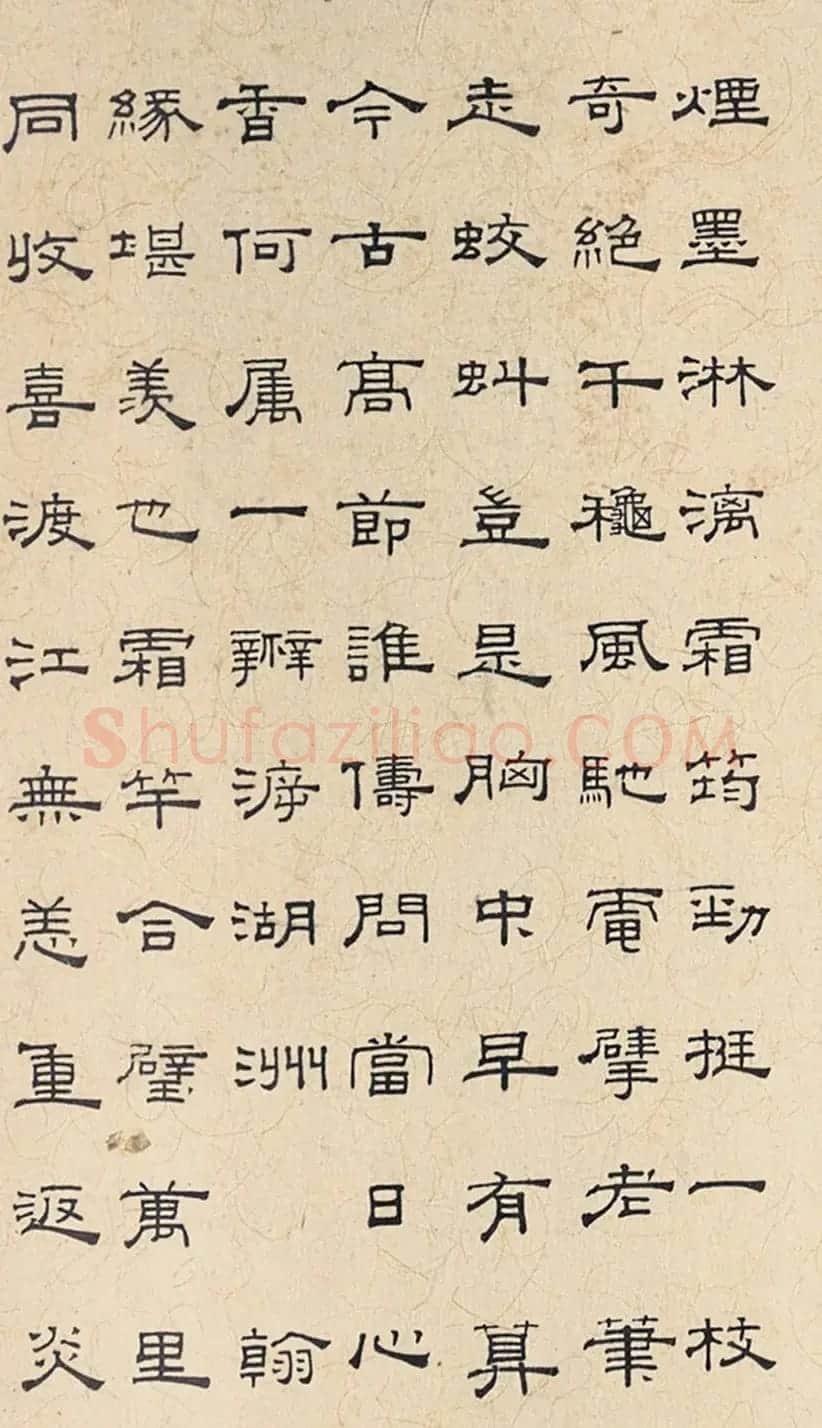 煙墨淋漓霜筠勁挺一枝
奇絕千龝風馳電擘老筆
走蛟虯豈是胸中早有算
今古髙節誰儔問當日心
香何属一瓣湖洲 翰
緣堪羨也霜竿合璧萬里
同收喜渡江無恙重返炎
Shufaziliao.COM